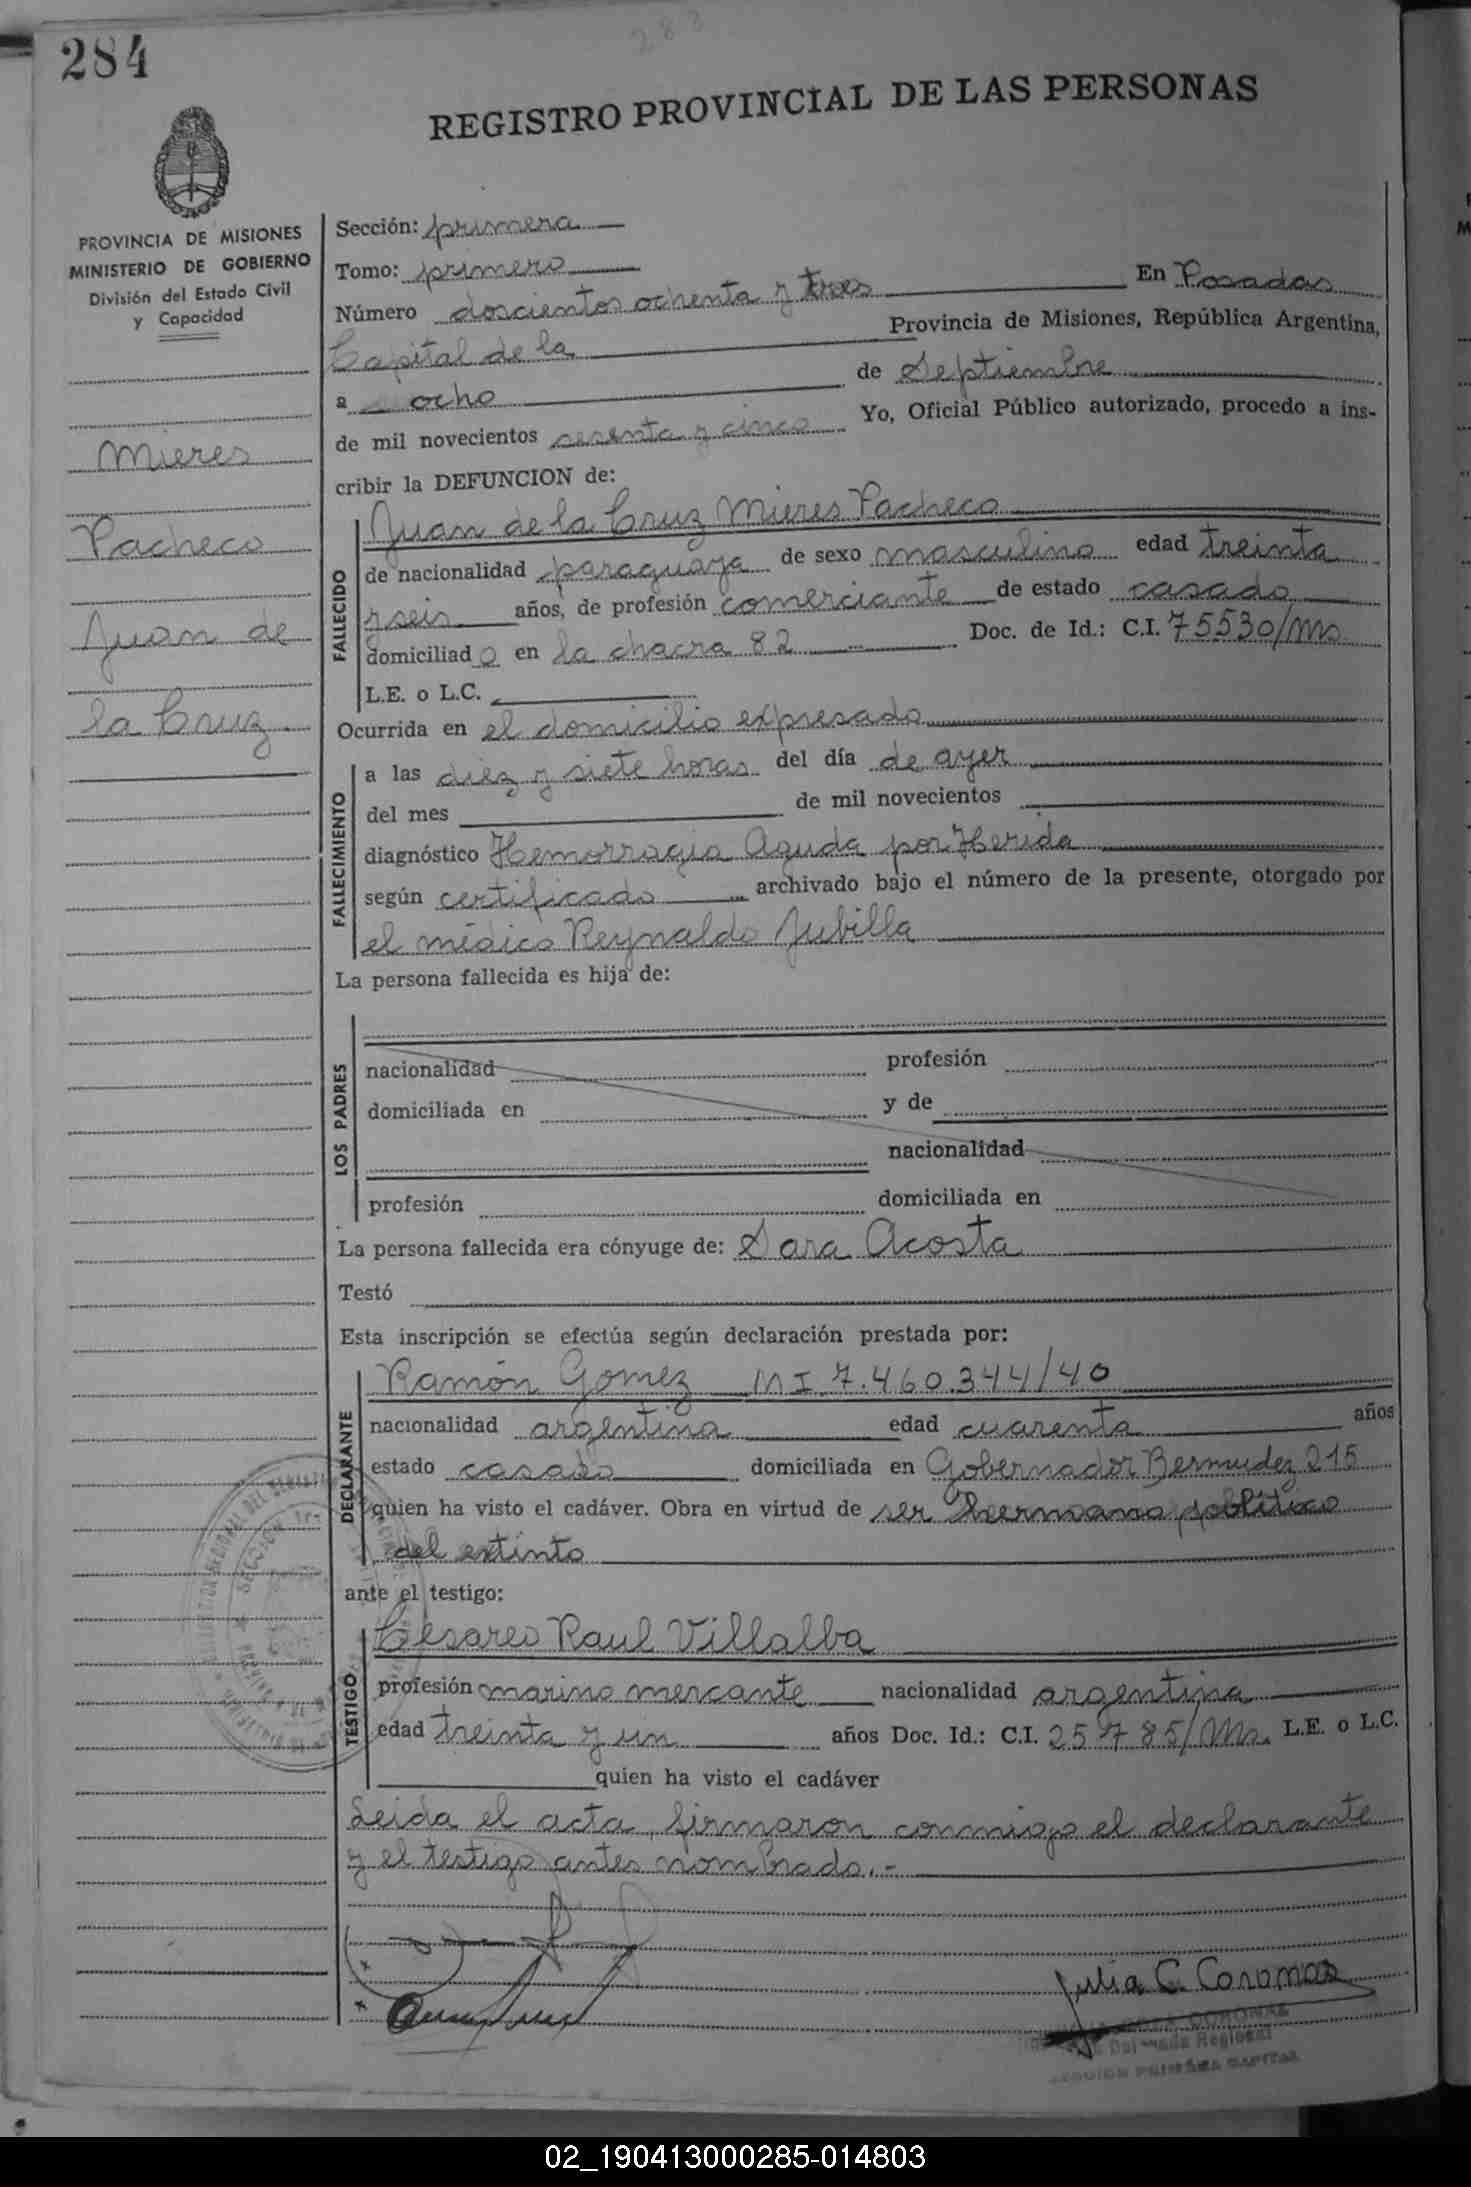 284
283
REGISTRO PROVINCIAL DE LAS PERSONAS
PROVINCIA DE MISIONES
MINISTERIO DE GOBIERNO
División del Estado Civil
y Capacidad
Mieres
Pacheco
Juan de
la Cruz
Sección: primera
Tomo: primero
Número doscientos ochenta y tres En Posadas
Capital de la Provincia de Misiones, República Argentina,
a ocho de Septiembre
de mil novecientos sesenta y cinco Yo, Oficial Público autorizado, procedo a ins-
cribir la DEFUNCION de:
FALLECIDO
Juan de la Cruz Mieres Pacheco
de nacionalidad paraguaya de sexo masculino edad treinta
y seis años, de profesión comerciante de estado casado
domiciliado en la chacra 82 Doc. de Id.: C.I. 75530/Ms.
L.E. o L.C.
Ocurrida en el domicilio expresado
FALLECIMIENTO
a las diez y siete horas del día de ayer
del mes de mil novecientos
diagnóstico Hemorragia Aguda por Herida
según certificado archivado bajo el número de la presente, otorgado por
el médico Reynaldo Jubilla
La persona fallecida es hija de:
LOS PADRES
nacionalidad profesión
domiciliada en y de
nacionalidad
profesión domiciliada en
La persona fallecida era cónyuge de: Sara Acosta
Testó
Esta inscripción se efectúa según declaración prestada por:
DECLARANTE
Ramón Gomez MI.7.460.344/40
nacionalidad argentina edad cuarenta años
estado casado domiciliada en Gobernador Bermudez 215
quien ha visto el cadáver. Obra en virtud de ser hermano político
del extinto
ante el testigo:
TESTIGO
Cesareo Raul Villalba
profesión marino mercante nacionalidad argentina
edad treinta y un años Doc. Id.: C.I. 25785/Ms. L.E. o L.C.
quien ha visto el cadáver
Leida el acta, firmaron conmigo el declarante
y el testigo antes nombrado.-
Julia C. Coronas
CORONAS
Regional
SECCION PRIMERA CAPITAL
02_190413000285-014803